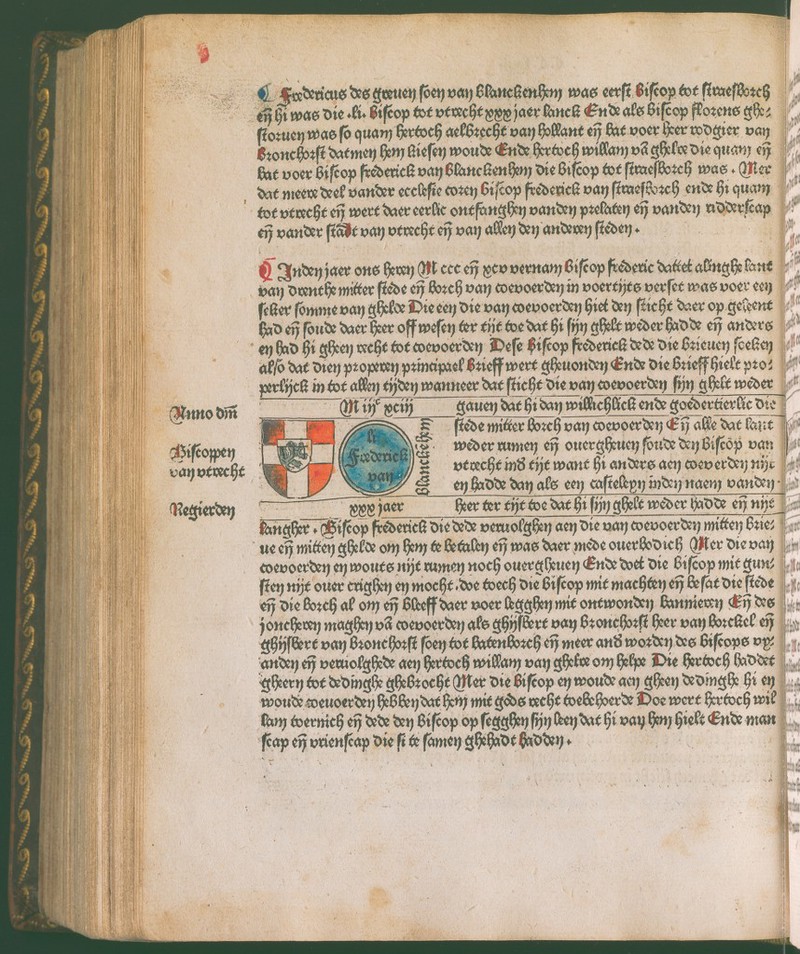 Fredericus des greuen soen van Blanckenhem was eerst Biscop tot straesborch
eñ hi was die .li. Biscop tot vtrecht xxx jaer lanck Ende als biscop florens ghe⸗
storuen was so quam hertoch aelbrecht van hollant eñ bat voer heer rodgier van
Bronchorst datmen hem kiesen woude Ende hertoch willam vā ghelre die quam eñ
bat voer biscop frederick van blanckenhem die biscop tot straesborch was . Mer
dat meere deel vander ecclesie coren biscop frederick van straesborch ende hi quam
tot vtrecht eñ wert daer eerlic ontfanghen vanden prelaten eñ vanden ridderscap
eñ vander stadt van vtrecht eñ van allen den anderen steden .
Inden jaer ons heren M ccc eñ xcv vernam biscop frederic dattet alinghe lant
van drenthe mitter stede eñ borch van coevoerden in voertijts verset was voer een
seker somme van ghelde Die een die van coevoerden hiet den sticht daer op geleent
had eñ soude daer heer off wesen ter tijt toe dat hi sijn ghelt weder hadde eñ anders
en had hi gheen recht tot coevoerden Dese biscop frederick dede die brieuen soeken
also dat dien properen principael brieff wert gheuonden Ende die brieff hielt pro⸗
perlijck in tot allen tijden wanneer dat sticht die van coevoerden sijn ghelt weder
Anno dm̄
M iijᶜ xciij
gauen dat hi dan willichlick ende goedertierlic die
Biscoppen
van vtrecht
li
Frederick
van
blanckēhem
stede mitter borch van coevoerden Eñ alle dat lant
weder rumen eñ ouergheuen soude den biscop van
vtrecht ind tijt want hi anders aen coeverden nijt
en hadde dan als een casteleyn inden naem vanden
Regierden
xxx jaer
heer ter tijt toe dat hi sijn ghelt weder hadde eñ nijt
langher . Biscop frederick die dede veruolghen aen die van coevoerden mitten brie⸗
ue eñ mitten ghelde om hem te betalen eñ was daer mede ouerbodich Mer die van
coevoerden en wouts nijt rumen noch ouergheuen Ende doet die biscop mit gun⸗
sten nijt ouer crighen en mocht . doe toech die biscop mit machten eñ besat die stede
eñ die borch al om eñ bleeff daer voer legghen mit ontwonden bannieren Eñ des
joncheren maghen vā coevoerden als ghijsbert van bronchorst heer van borckel eñ
ghijsbert van bronchorst soen tot batenborch eñ meer and worden des biscops vy⸗
anden eñ veruolghede aen hertoch willam van ghelre om helpe Die hertoch haddet
gheern tot dedinghe ghebrocht Mer die biscop en woude aen gheen dedinghe hi en
woude coeuoerden hebben dat hem mit gods recht toebehoerde Doe wert hertoch wil
lam toernich eñ dede den biscop op segghen sijn leen dat hi van hem hielt Ende man
scap eñ vrienscap die si te samen ghehadt hadden .